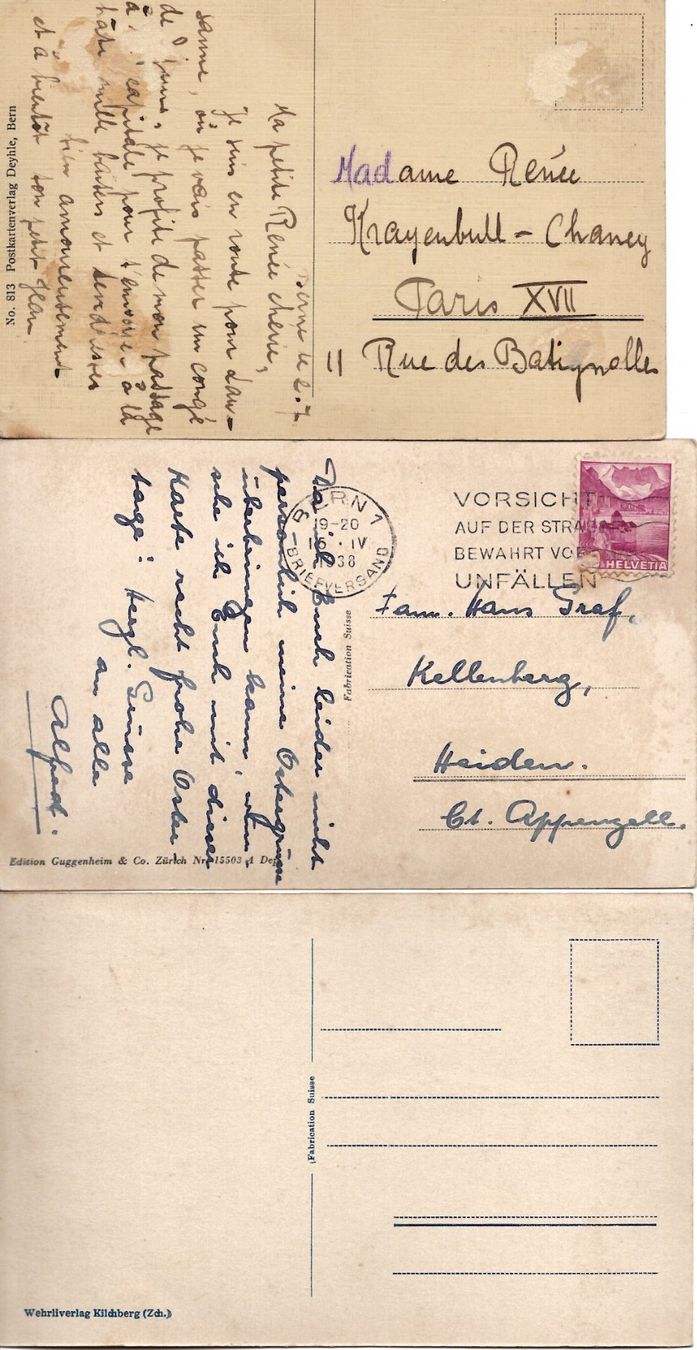 Berne le 2.7.
Ma petite Renée chérie,
Je suis en route pour Lau-
sanne, où je vais passer un congé
de jours, je profite de mon passage
à capitale pour t'envoyer à la
hâte mille baisers et tendresses
bien amoureusement
et à bientôt ton petit Jean
No. 813 Postkartenverlag Deyhle, Bern
Madame Renée
Krayenbull - Chaney
Paris XVII
11 Rue des Batignolles
Da ich Euch leider nicht
persönlich meine Ostergrüsse
überbringen kann, wün-
sche ich Euch mit dieser
Karte recht frohe Oster
tage! Herzl. Grüsse
an alle
Alfred.
BERN 1
19-20
16. IV
1938
BRIEFVERSAND
VORSICHT
AUF DER STRA
BEWAHRT VOR
UNFÄLLEN
HELVETIA
Fabrication Suisse
Fam. Hans Graf,
Kellenberg,
Heiden.
Ct. Appenzell.
Edition Guggenheim & Co. Zürich Nr. 15503 A Dep.
Fabrication Suisse
Wehrliverlag Kilchberg (Zch.)